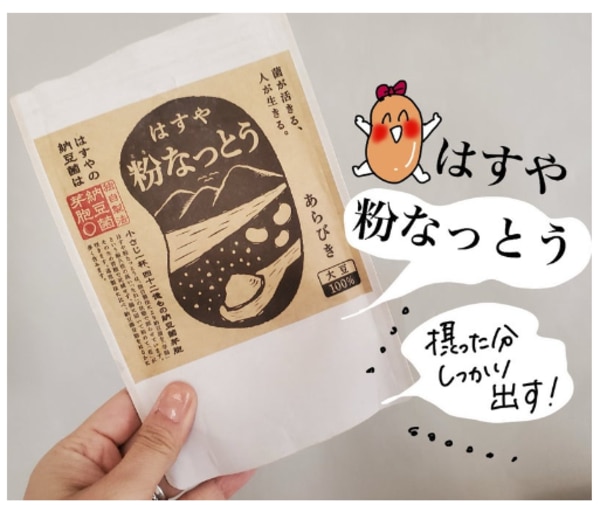 菌が活きる、
人が生きる。
はすや
粉なっとう
はすやの
納豆菌は
独自製法
納豆菌
芽胞
あらびき
大豆
100%
小さじ一杯、四十二億もの納豆菌芽胞
はすや
粉なっとう
摂った分
しっかり
出す!